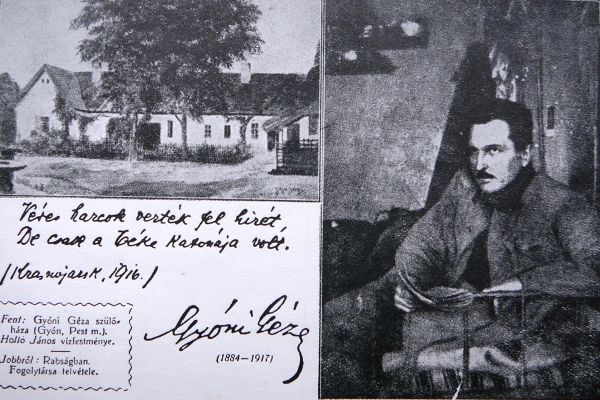 Véres harcok verték fel hírét
De csak a béke katonája volt.
/Krasnojarsk, 1916./
Gyóni Géza
(1884—1917)
Fent: Gyóni Géza szülő-
háza (Gyón, Pest m.).
Holló János vízfestménye.
Jobbról: Rabságban.
Fogolytársa felvétele.